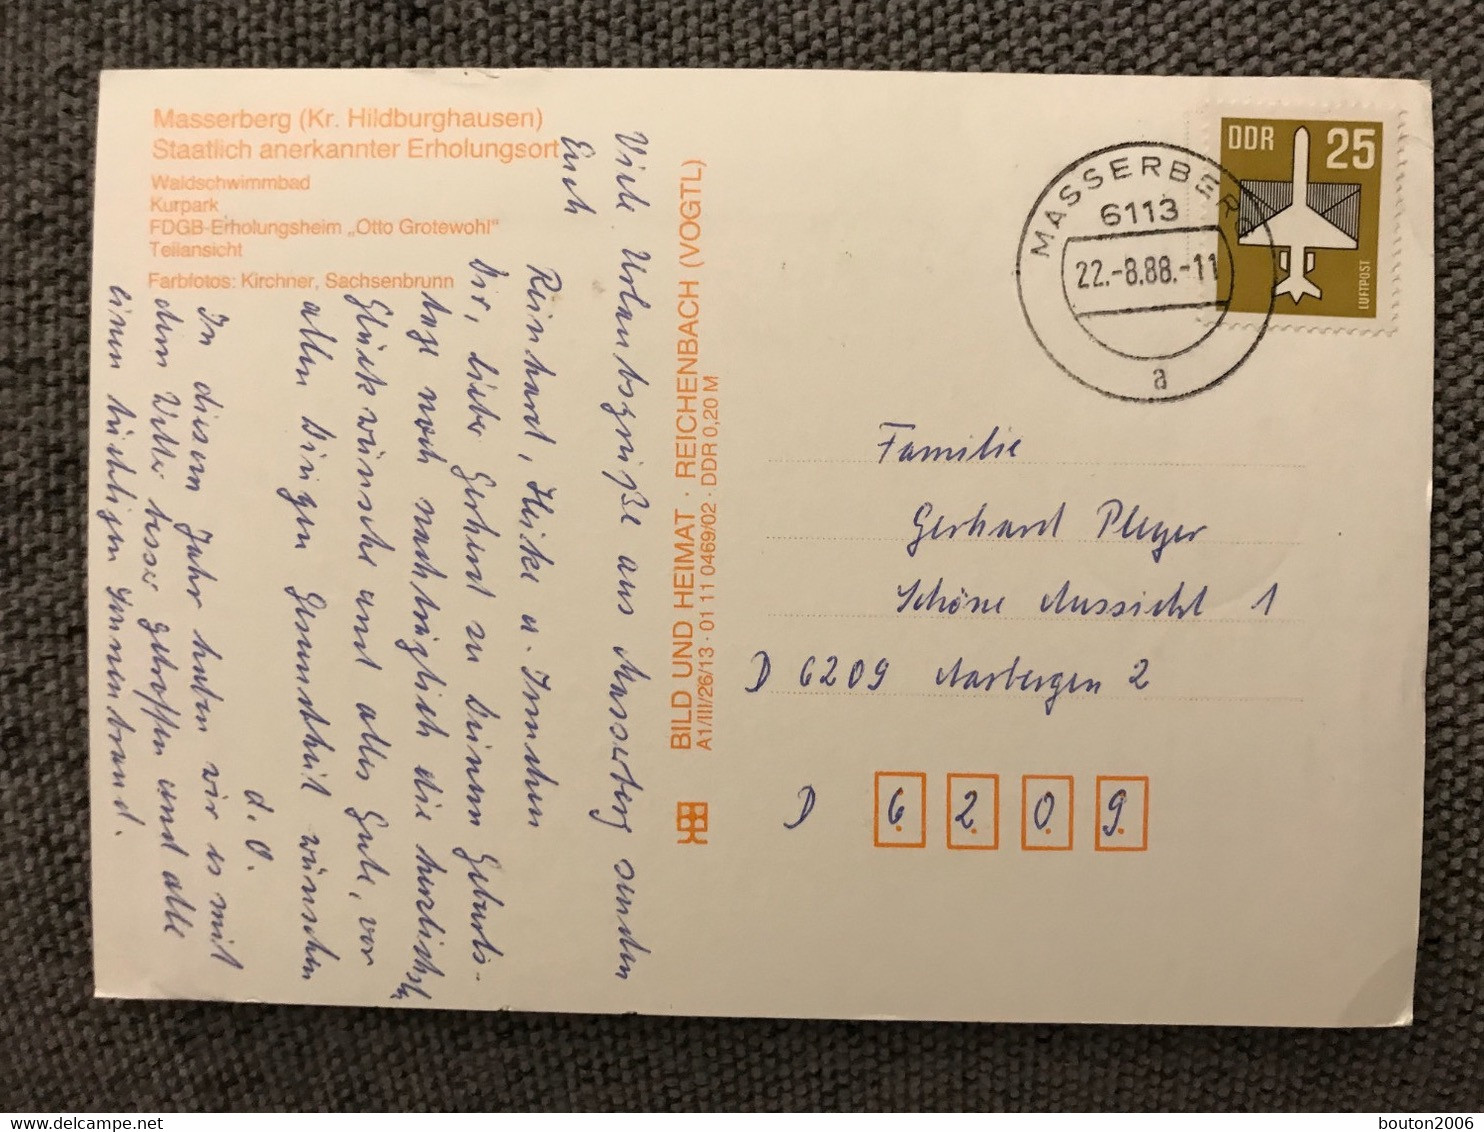 Masserberg (Kr. Hildburghausen)
Staatlich anerkannter Erholungsort
Waldschwimmbad
Kurpark
FDGB-Erholungsheim „Otto Grotewohl"
Teilansicht
Farbfotos: Kirchner, Sachsenbrunn
Viele Urlaubsgrüße aus Masserberg senden
Euch
Reinhard, Heike u. Irmchen
Dir, lieber Gerhard zu Deinem Geburts-
tage noch nachträglich die herzlichsten
Glückwünsche und alles Gute, vor
allen Dingen Gesundheit wünschen
d. O.
In diesem Jahr haben wir es mit
dem Wetter besser getroffen und alle
einen tüchtigen Sonnenbrand.
BILD UND HEIMAT · REICHENBACH (VOGTL)
A1/III/26/13 · 01 11 0469/02 · DDR 0,20 M
MASSERBERG
6113
22.-8.88.-11
a
DDR 25
LUFTPOST
Familie
Gerhard Pleyer
Schöne Aussicht 1
D 6209 Aarbergen 2
D 6 2 0 9
bouton2006